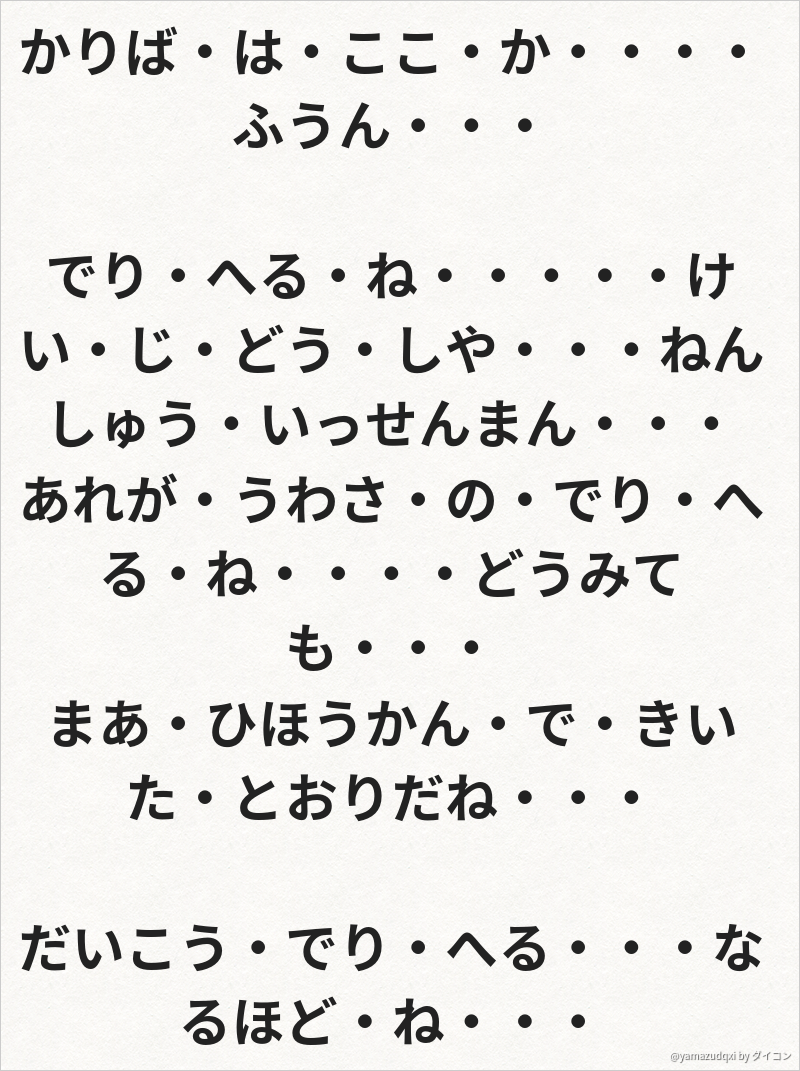 かりば・は・ここ・か・・・・
ふうん・・・
でり・へる・ね・・・・・け
い・じ・どう・しや・・・ねん
しゅう・いっせんまん・・・
あれが・うわさ・の・でり・へ
る・ね・・・・どうみて
も・・・
まあ・ひほうかん・で・きい
た・とおりだね・・・
だいこう・でり・へる・・・な
るほど・ね・・・
@yamazudqxi by ダイコン